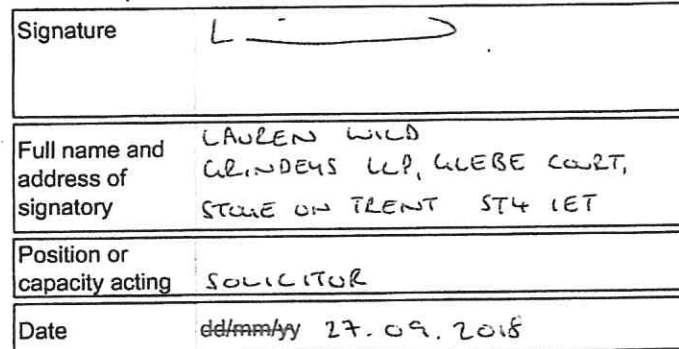 Signature
Full name and address of signatory
LAUREN WILD
GRINDEYS LLP, GLEBE COURT,
STOKE ON TRENT ST4 1ET
Position or capacity acting
SOLICITOR
Date
dd/mm/yy 27.09.2018